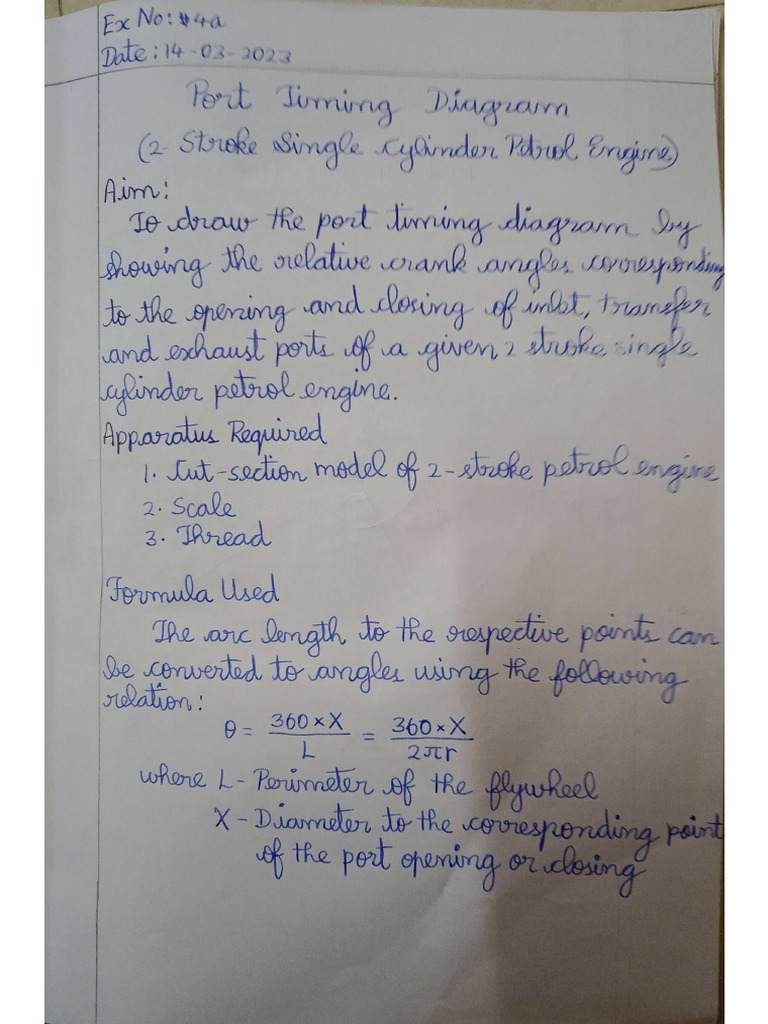 Ex No: 4a
Date: 14-03-2023
Port Timing Diagram
(2-Stroke Single Cylinder Petrol Engine)
Aim:
To draw the port timing diagram by
showing the relative crank angles corresponding
to the opening and closing of inlet, transfer
and exhaust ports of a given 2 stroke single
cylinder petrol engine.
Apparatus Required
1. Cut-section model of 2-stroke petrol engine
2. Scale
3. Thread
Formula Used
The arc length to the respective points can
be converted to angles using the following
relation:
θ = 360×X / L = 360×X / 2πr
where L - Perimeter of the flywheel
X - Diameter to the corresponding point
of the port opening or closing